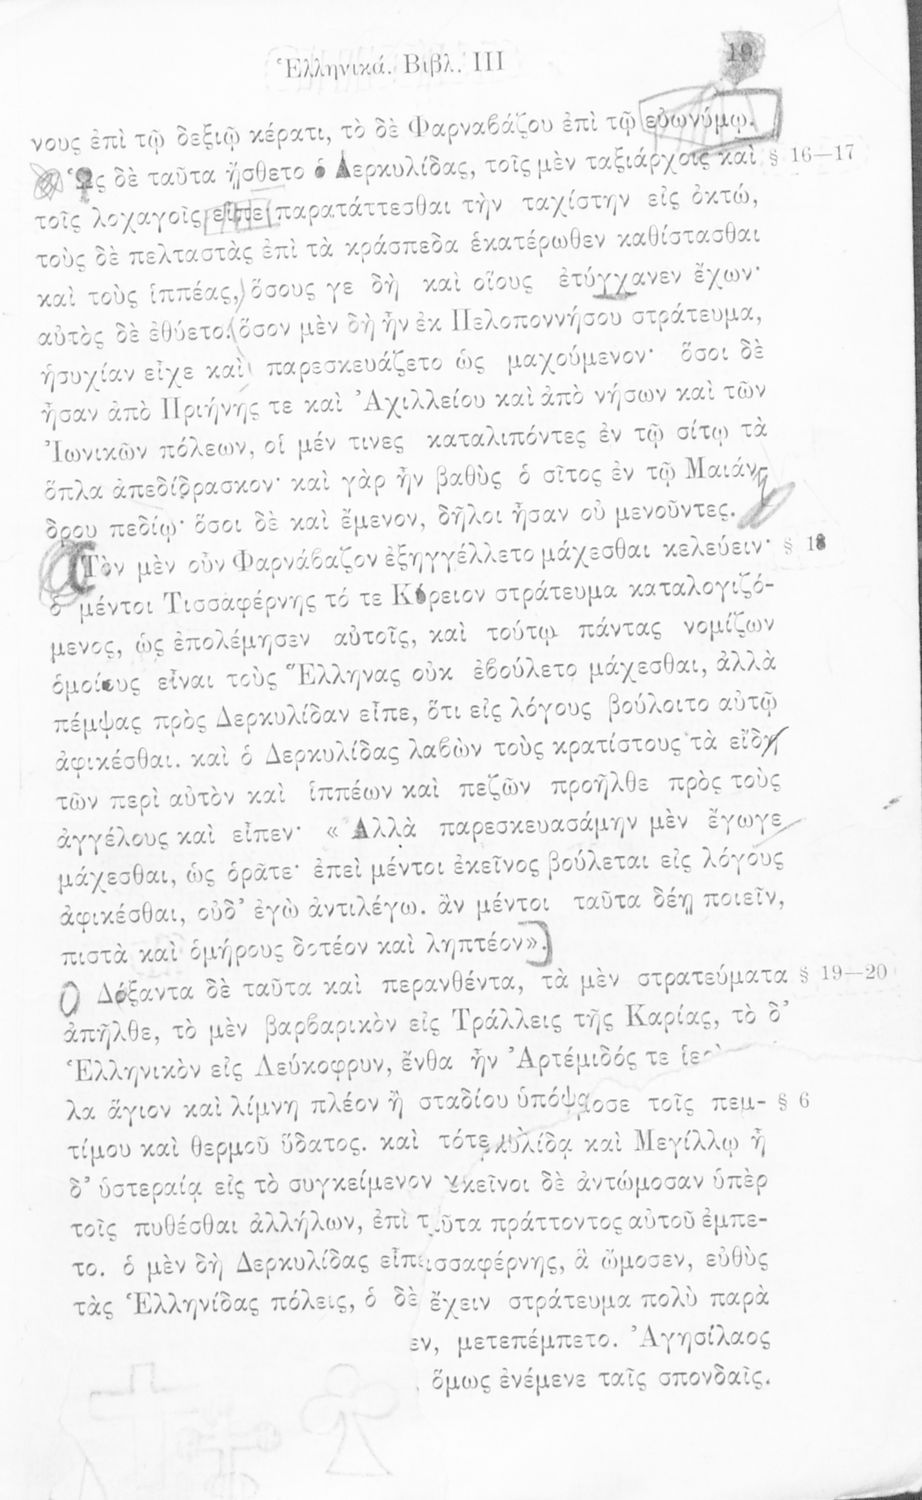 Ἑλληνικά. Βιβλ. III
19
νους ἐπὶ τῷ δεξιῷ κέρατι, τὸ δὲ Φαρναβάζου ἐπὶ τῷ εὐωνύμῳ.
Ὡς δὲ ταῦτα ᾔσθετο ὁ Δερκυλίδας, τοῖς μὲν ταξιάρχοις καὶ § 16—17
τοῖς λοχαγοῖς εἶπε παρατάττεσθαι τὴν ταχίστην εἰς ὀκτώ,
τοὺς δὲ πελταστὰς ἐπὶ τὰ κράσπεδα ἑκατέρωθεν καθίστασθαι
καὶ τοὺς ἱππέας, ὅσους γε δὴ καὶ οἵους ἐτύγχανεν ἔχων·
αὐτὸς δὲ ἐθύετο. ὅσον μὲν δὴ ἦν ἐκ Πελοποννήσου στράτευμα,
ἡσυχίαν εἶχε καὶ παρεσκευάζετο ὡς μαχούμενον· ὅσοι δὲ
ἦσαν ἀπὸ Πριήνης τε καὶ Ἀχιλλείου καὶ ἀπὸ νήσων καὶ τῶν
Ἰωνικῶν πόλεων, οἱ μέν τινες καταλιπόντες ἐν τῷ σίτῳ τὰ
ὅπλα ἀπεδίδρασκον· καὶ γὰρ ἦν βαθὺς ὁ σῖτος ἐν τῷ Μαιάν-
δρου πεδίῳ· ὅσοι δὲ καὶ ἔμενον, δῆλοι ἦσαν οὐ μενοῦντες.
Τὸν μὲν οὖν Φαρνάβαζον ἐξηγγέλλετο μάχεσθαι κελεύειν· § 18
ὁ μέντοι Τισσαφέρνης τό τε Κύρειον στράτευμα καταλογιζό-
μενος, ὡς ἐπολέμησεν αὐτοῖς, καὶ τούτῳ πάντας νομίζων
ὁμοίους εἶναι τοὺς Ἕλληνας οὐκ ἐβούλετο μάχεσθαι, ἀλλὰ
πέμψας πρὸς Δερκυλίδαν εἶπε, ὅτι εἰς λόγους βούλοιτο αὐτῷ
ἀφικέσθαι. καὶ ὁ Δερκυλίδας λαβὼν τοὺς κρατίστους τὰ εἴδη
τῶν περὶ αὐτὸν καὶ ἱππέων καὶ πεζῶν προῆλθε πρὸς τοὺς
ἀγγέλους καὶ εἶπεν· «Ἀλλὰ παρεσκευασάμην μὲν ἔγωγε
μάχεσθαι, ὡς ὁρᾶτε· ἐπεὶ μέντοι ἐκεῖνος βούλεται εἰς λόγους
ἀφικέσθαι, οὐδ' ἐγὼ ἀντιλέγω. ἂν μέντοι ταῦτα δέῃ ποιεῖν,
πιστὰ καὶ ὁμήρους δοτέον καὶ ληπτέον».
Δόξαντα δὲ ταῦτα καὶ περανθέντα, τὰ μὲν στρατεύματα § 19—20
ἀπῆλθε, τὸ μὲν βαρβαρικὸν εἰς Τράλλεις τῆς Καρίας, τὸ δ'
Ἑλληνικὸν εἰς Λεύκοφρυν, ἔνθα ἦν Ἀρτέμιδός τε
λα ἅγιον καὶ λίμνη πλέον ἢ σταδίου τοῖς πεμ- § 6
τίμου καὶ θερμοῦ ὕδατος. καὶ τότε καὶ Μεγίλλῳ ἦ
δ' ὑστεραίᾳ εἰς τὸ συγκείμενον δὲ ἀντώμοσαν ὑπὲρ
τοῖς πυθέσθαι ἀλλήλων, ἐπὶ πράττοντος αὐτοῦ ἐμπε-
το. ὁ μὲν δὴ Δερκυλίδας ἃ ὤμοσεν, εὐθὺς
τὰς Ἑλληνίδας πόλεις, ὁ δὲ ἔχειν στράτευμα πολὺ παρὰ
μετεπέμπετο. Ἀγησίλαος
ὅμως ἐνέμενε ταῖς σπονδαῖς.